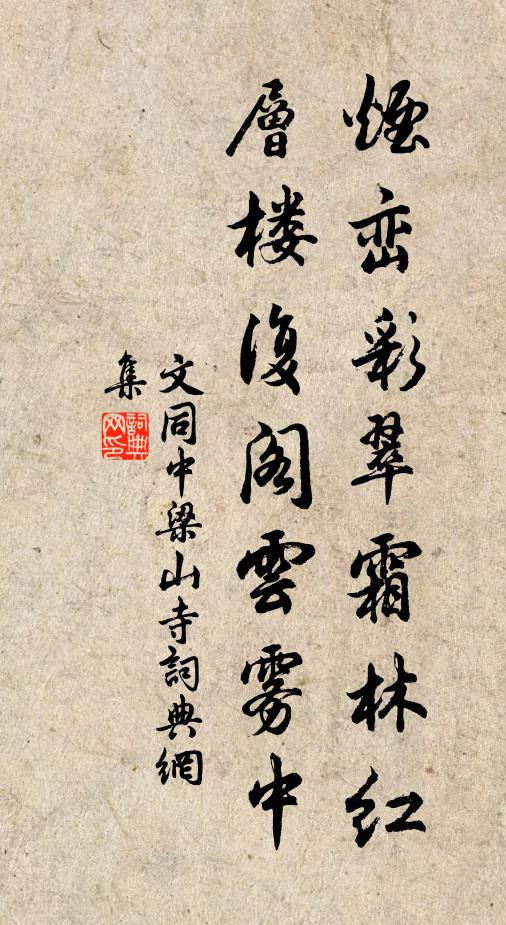 煙峦彩翠霜林红
層楼復阁雲雾中
文同中梁山寺詞典網
集
詞典网印